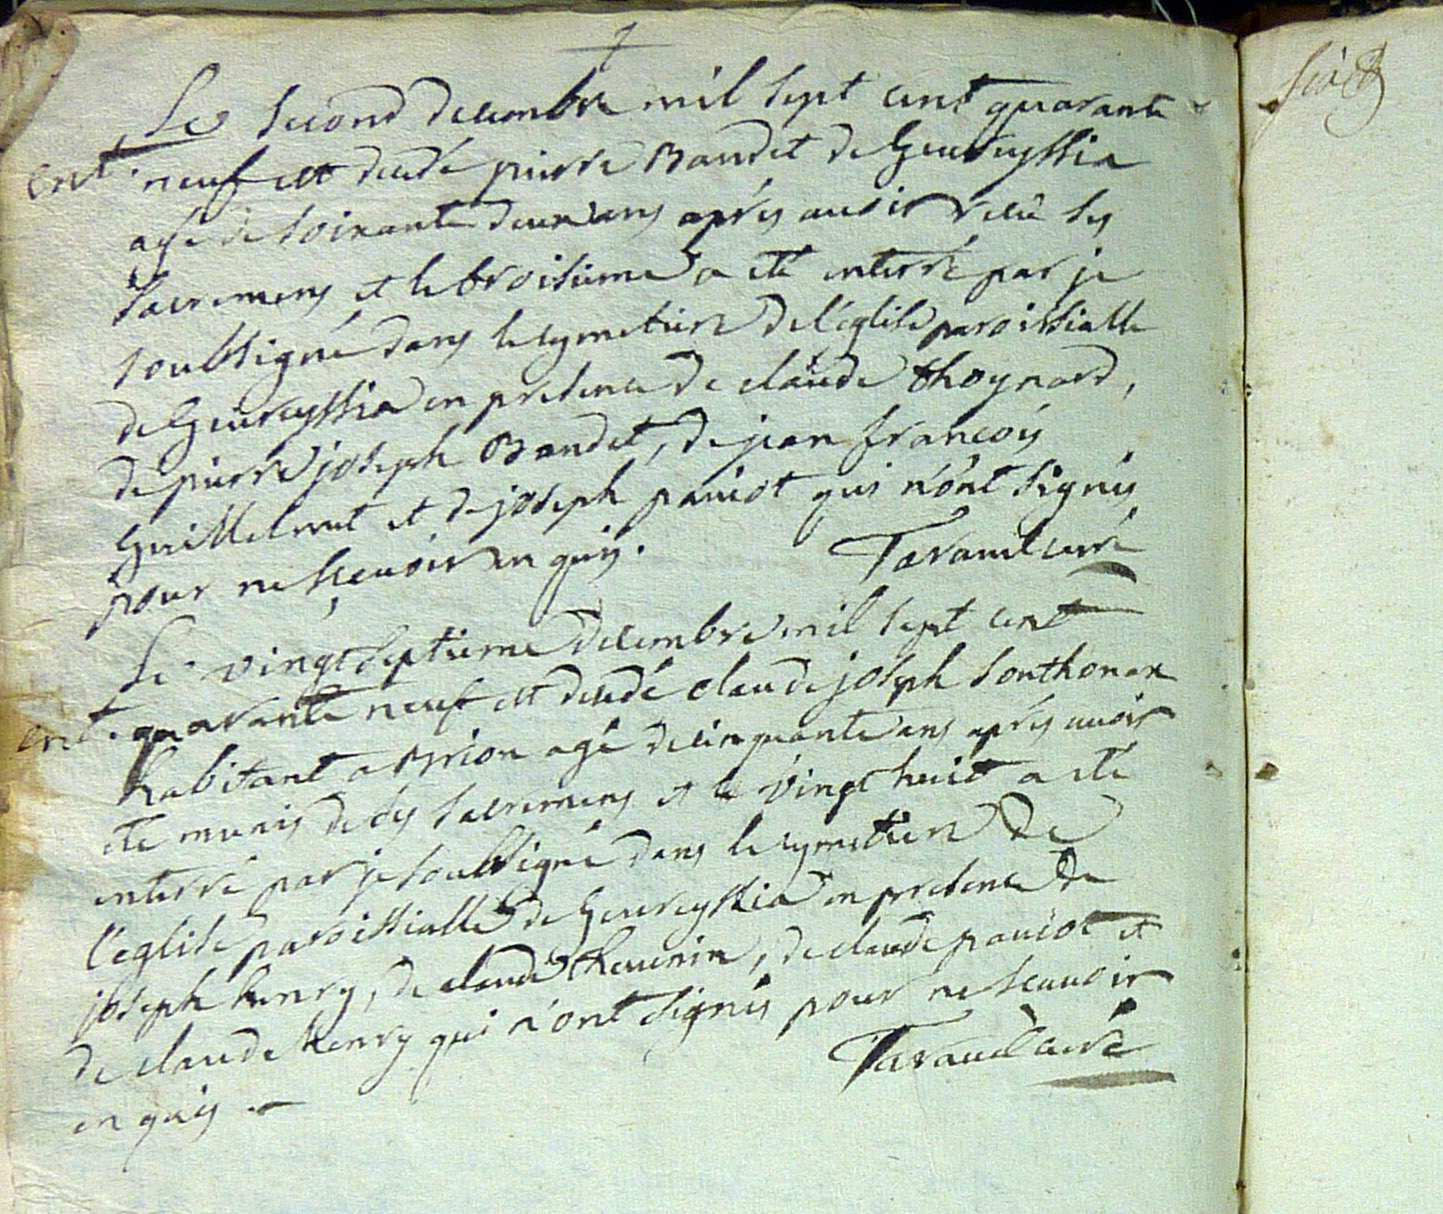 Le second decembre mil sept cent quarante
ent. neuf est decedé pierre Baudet de Geureyssia
agé de soixante deux ans aprés auoir reçu ses
sacremens et le troisieme a eté enterré par je
soubsigné dans le cymetiere de l'eglise paroissialle
de Geureyssia en presence de claude thoynard,
de pierre joseph Baudet, de jean françois
Guillermet et de joseph pauiot qui n'ont signés
pour ne sçeuoir en quis. Tavaud curé
Le vingt septieme decembre mil sept cent
ent. quarante neuf est decedé claude joseph Sonthonax
habitant a Brion agé de cinquante ans aprés auoir
eté munis de ses sacremens et le vingt huit a eté
enterré par je soubsigné dans le cymetiere de
l'eglise paroissialle de Geureyssia en presence de
joseph henry, de claude theuenin, de claude pauiot et
de claude henry qui n'ont signés pour ne sceauoir
en quis. Tavaud curé